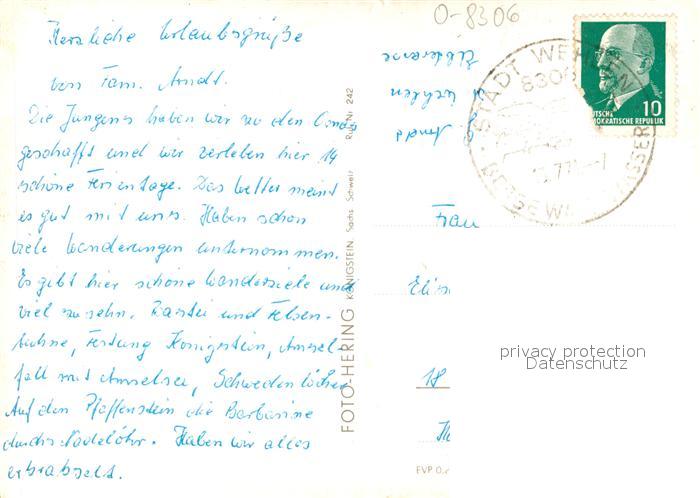 O-8306
Herzliche Urlaubsgrüße
von Fam. Arndt.
Die Jungens haben wir zu den Omas
geschafft und wir verleben hier 14
schöne Ferientage. Das Wetter meint
es gut mit uns. Haben schon
viele Wanderungen unternommen.
Es gibt hier schöne Wanderziele und
viel zu sehn. Bastei und Felsen-
bühne, Festung Königstein, Amsel-
fall mit Amselsee, Schwedenlöcher
Auf den Pfaffenstein die Barbarine
durchs Nadelöhr. Haben wir alles
erkrabselt.
FOTO-HERING KÖNIGSTEIN, Sächs. Schweiz
242
EVP 0,
Arndt
Wehlen
STADT WEHLEN
830
10
DEUTSCHE
DEMOKRATISCHE REPUBLIK
Frau
18
privacy protection
Datenschutz